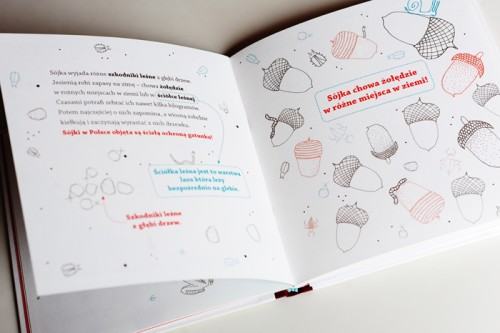 Sójka wyjada różne szkodniki leśne z głębi drzew.
Jesienią robi zapasy na zimę – chowa żołędzie
w różnych miejscach w ziemi lub w ściółce leśnej.
Czasami potrafi zebrać ich nawet kilka kilogramów.
Potem najczęściej o nich zapomina, a wiosną żołędzie
kiełkują i zaczynają wyrastać z nich drzewka.
Sójki w Polsce objęte są ścisłą ochroną gatunku!
Ściółka leśna jest to warstwa
lasu która leży
bezpośrednio na glebie.
Szkodniki leśne
z głębi drzew.
Sójka chowa żołędzie
w różne miejsca w ziemi!